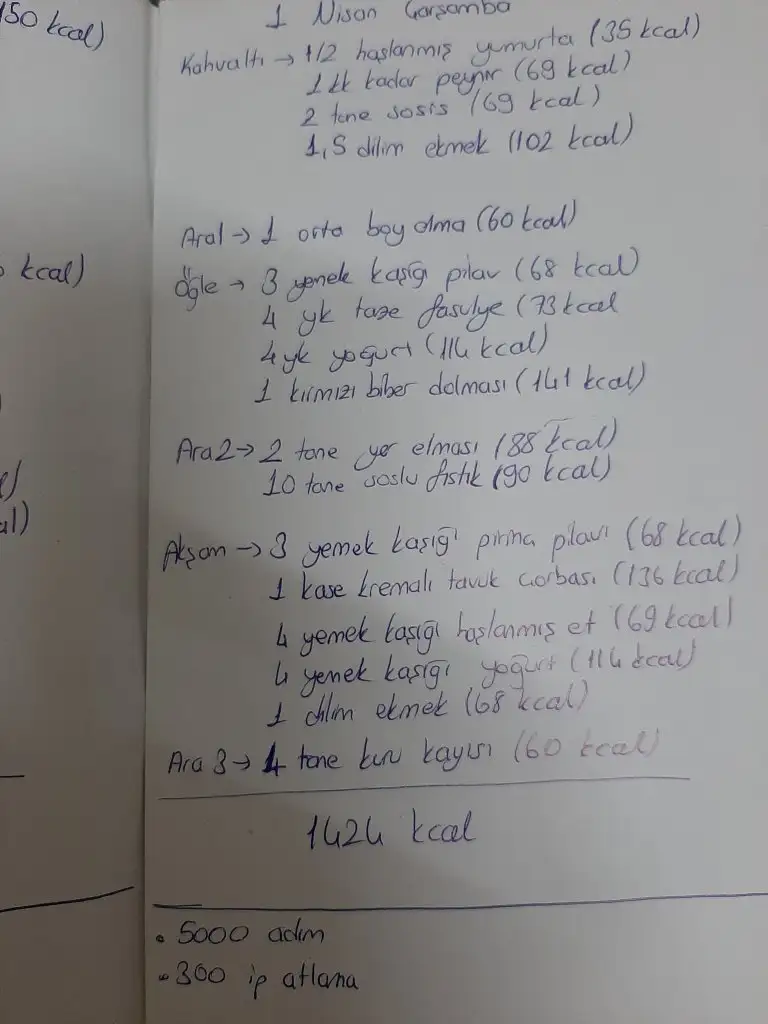 150 kcal)
kcal)
1 Nisan Çarşamba
Kahvaltı → 1/2 haşlanmış yumurta (35 kcal)
1 kk kadar peynir (69 kcal)
2 tane sosis (69 kcal)
1,5 dilim ekmek (102 kcal)
Ara1 → 1 orta boy elma (60 kcal)
Öğle → 3 yemek kaşığı pilav (68 kcal)
4 yk taze fasulye (73 kcal
4 yk yoğurt (114 kcal)
1 kırmızı biber dolması (141 kcal)
Ara2 → 2 tane yer elması (88 kcal)
10 tane soslu fıstık (90 kcal)
Akşam → 3 yemek kaşığı pirinç pilavı (68 kcal)
1 kase kremalı tavuk çorbası (136 kcal)
4 yemek kaşığı haşlanmış et (69 kcal)
4 yemek kaşığı yoğurt (114 kcal)
1 dilim ekmek (68 kcal)
Ara 3 → 4 tane kuru kayısı (60 kcal)
1424 kcal
• 5000 adım
• 300 ip atlama